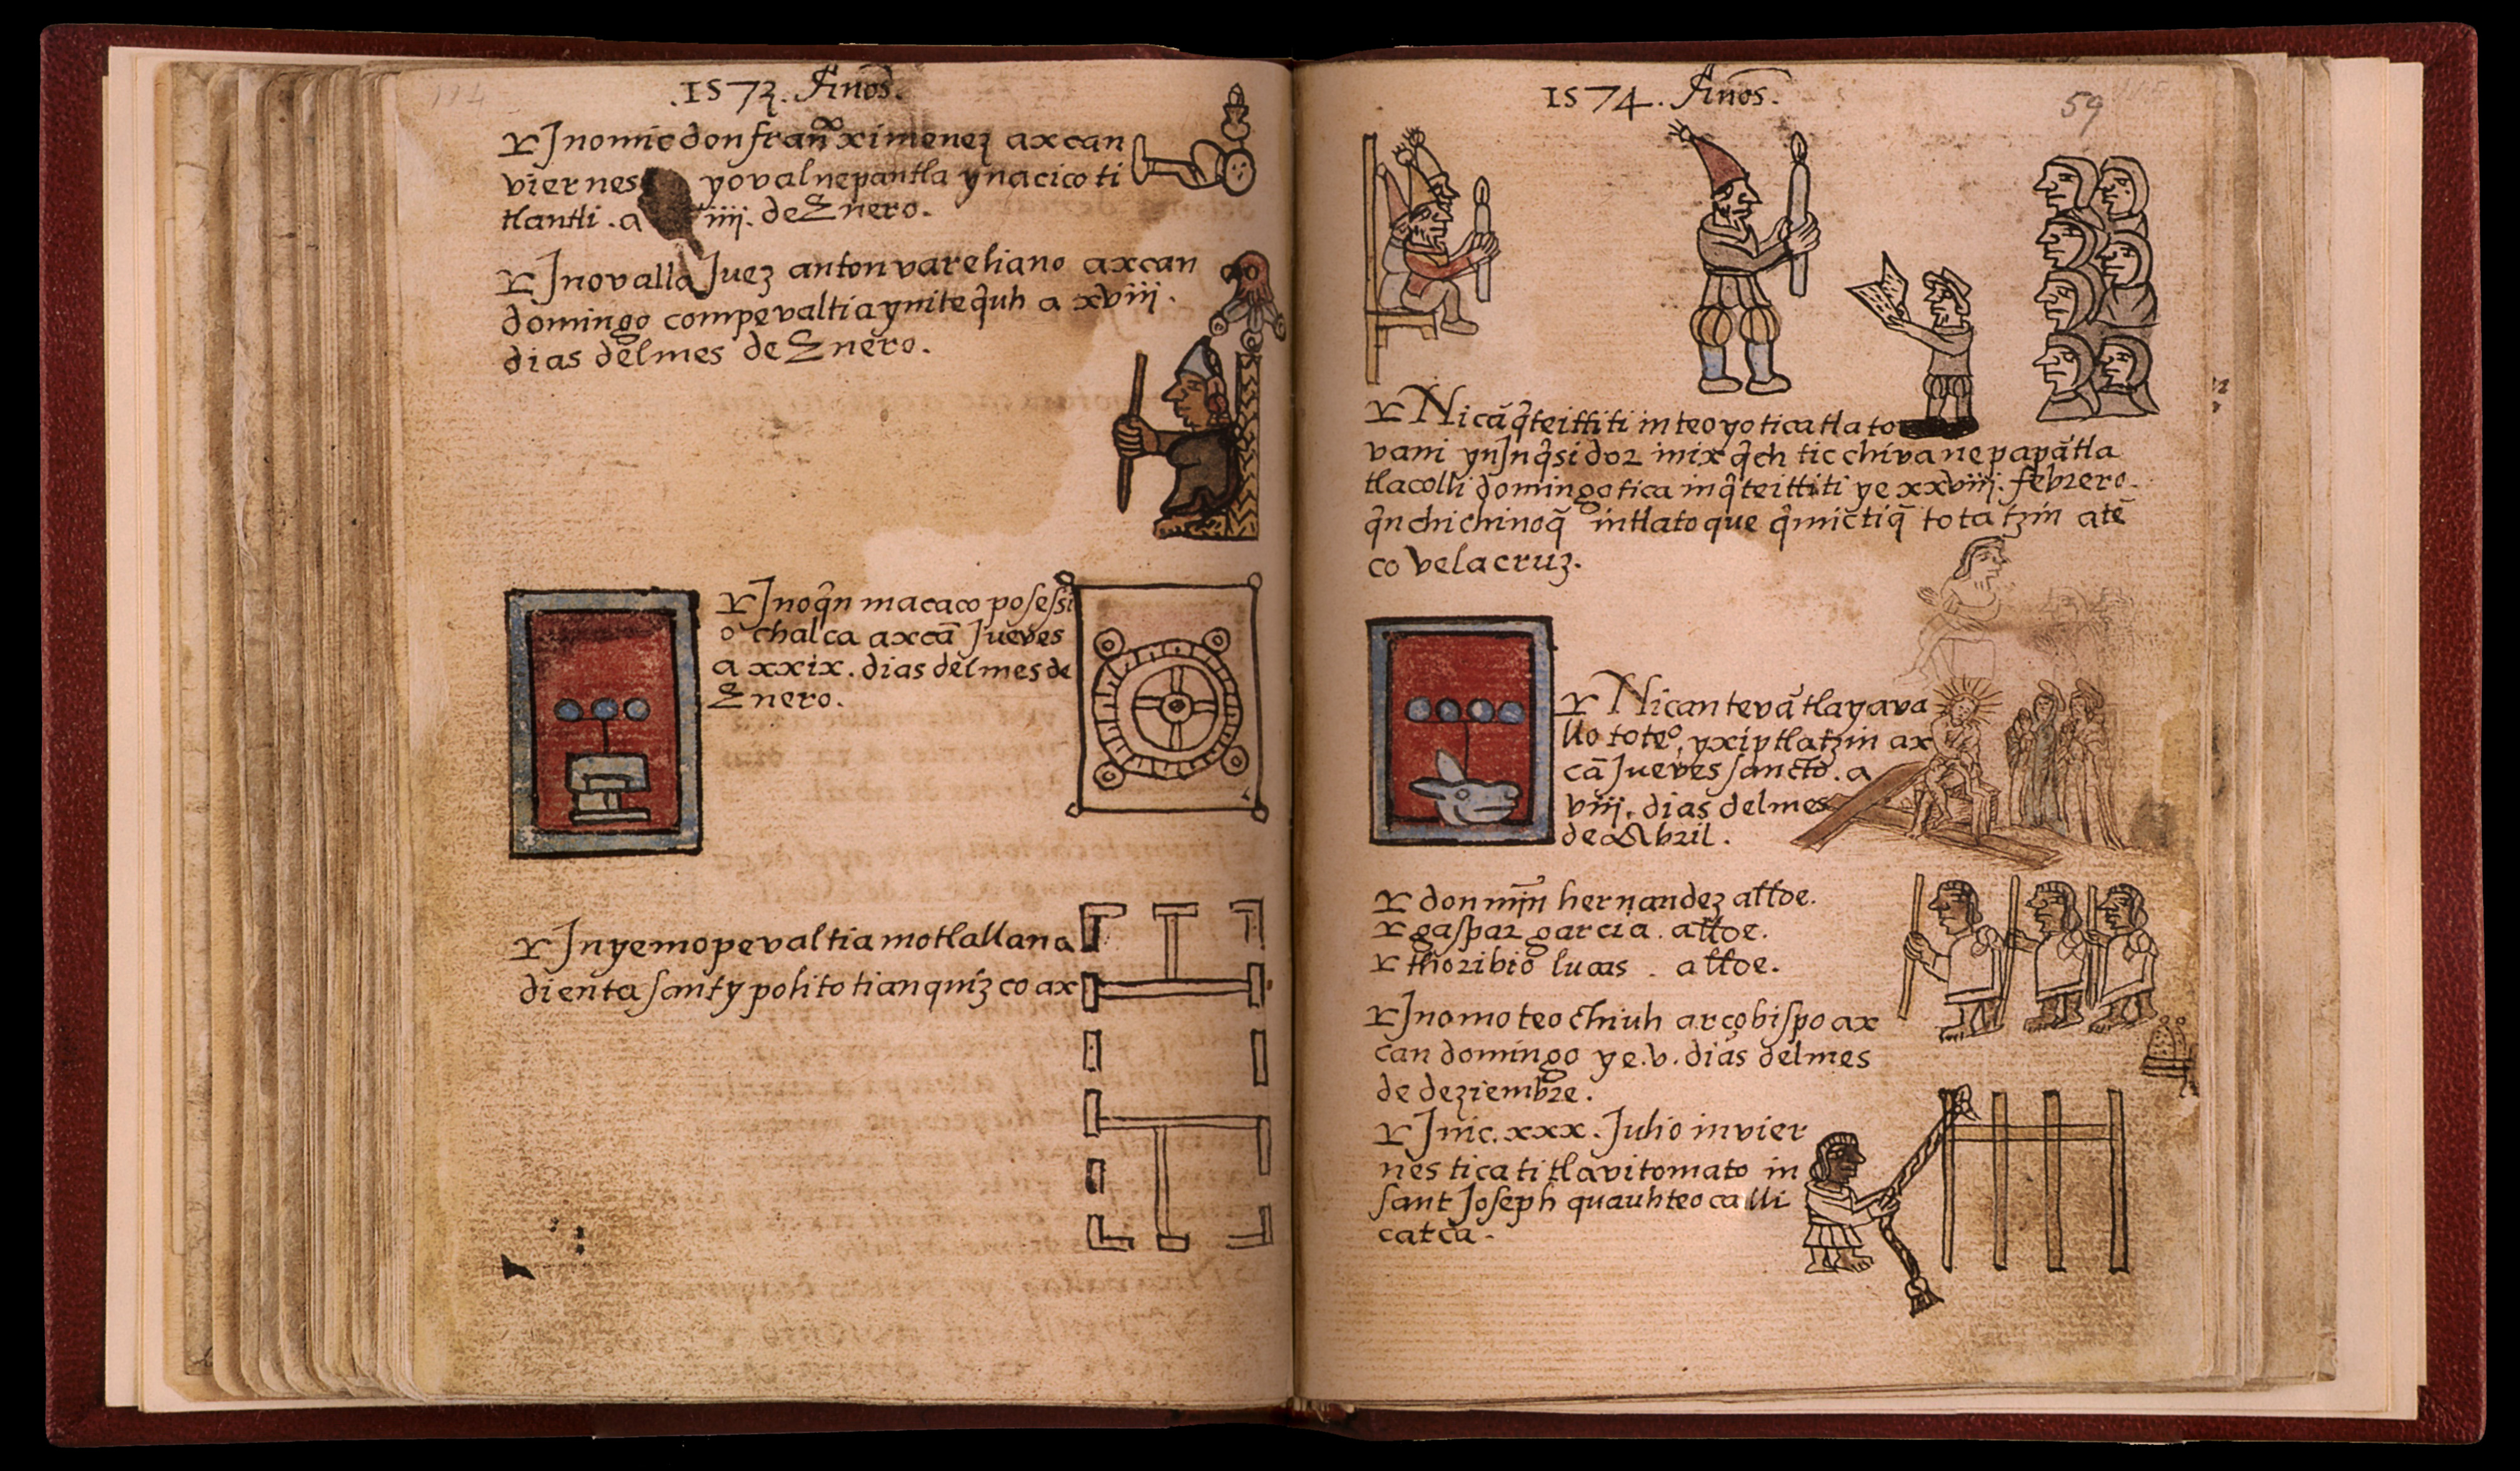 .1573. Años.
Jnomic don fran.co ximenez axcan
viernes yovalnepantla ynacico ti
tlantli . a iiij. de Enero.
Jnovalla Juez anton vareliano axcan
domingo compevaltia ynitequh a xviij.
dias delmes de Enero.
Jnoqn macaco posessi
o chalca axcā Jueves
a xxix. dias delmes de
Enero.
Jnyemopevaltia motlallana
dienta santy polito tianquizco ax
1574. Años.
59
Nicā q̄teittiti in teoyotica tlato
vani ynJnq̄sidor inix q̄ch tic chiva nepapātla
tlacolli domingotica inq̄teittiti ye xxviij. febrero.
q̄n chichinoq̄ intlatoque q̄mictiq̄ totatzin atē
co velacruz.
Nican tevātlayava
llo toteo, yxiptlatzin ax
cā Jueves sancto. a
viij. dias delmes
de Abril.
don mīn hernandez alłoe.
gaspar garcia. alłoe.
thoribio lucas . alłoe.
Jnomoteochiuh arçobispo ax
can domingo ye.v. dias delmes
de deziembre.
Jnic.xxx. Julio invier
nes tica titlavitomato in
sant Joseph quauhteocalli
catca.